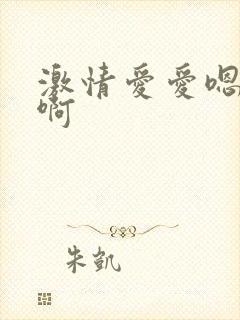 激情爱爱嗯
啊
朱凯